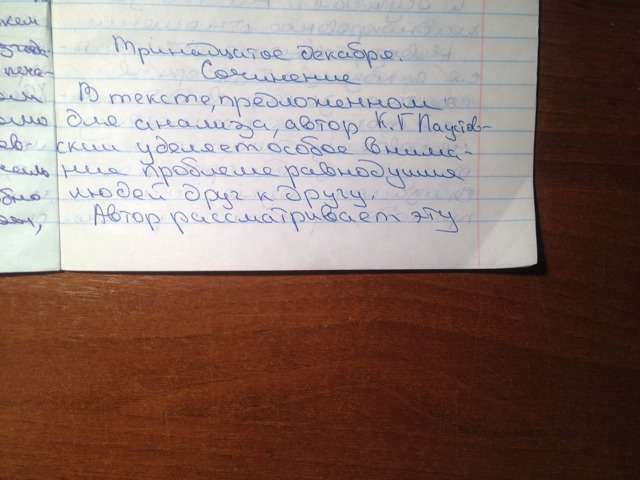 Тринадцатое декабря.
Сочинение
В тексте, предложенном
для анализа, автор К.Г Паустов-
ский уделяет особое внима-
ние проблеме равнодушия
людей друг к другу.
Автор рассматривает эту